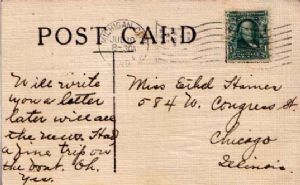 POST CARD
MICHIGAN
Will write
you a letter
later with all
the news. Had
a fine trip on
the boat. Oh.
Yes.
Miss Ethel Hamer
584 W. Congress St.
Chicago
Illinois.